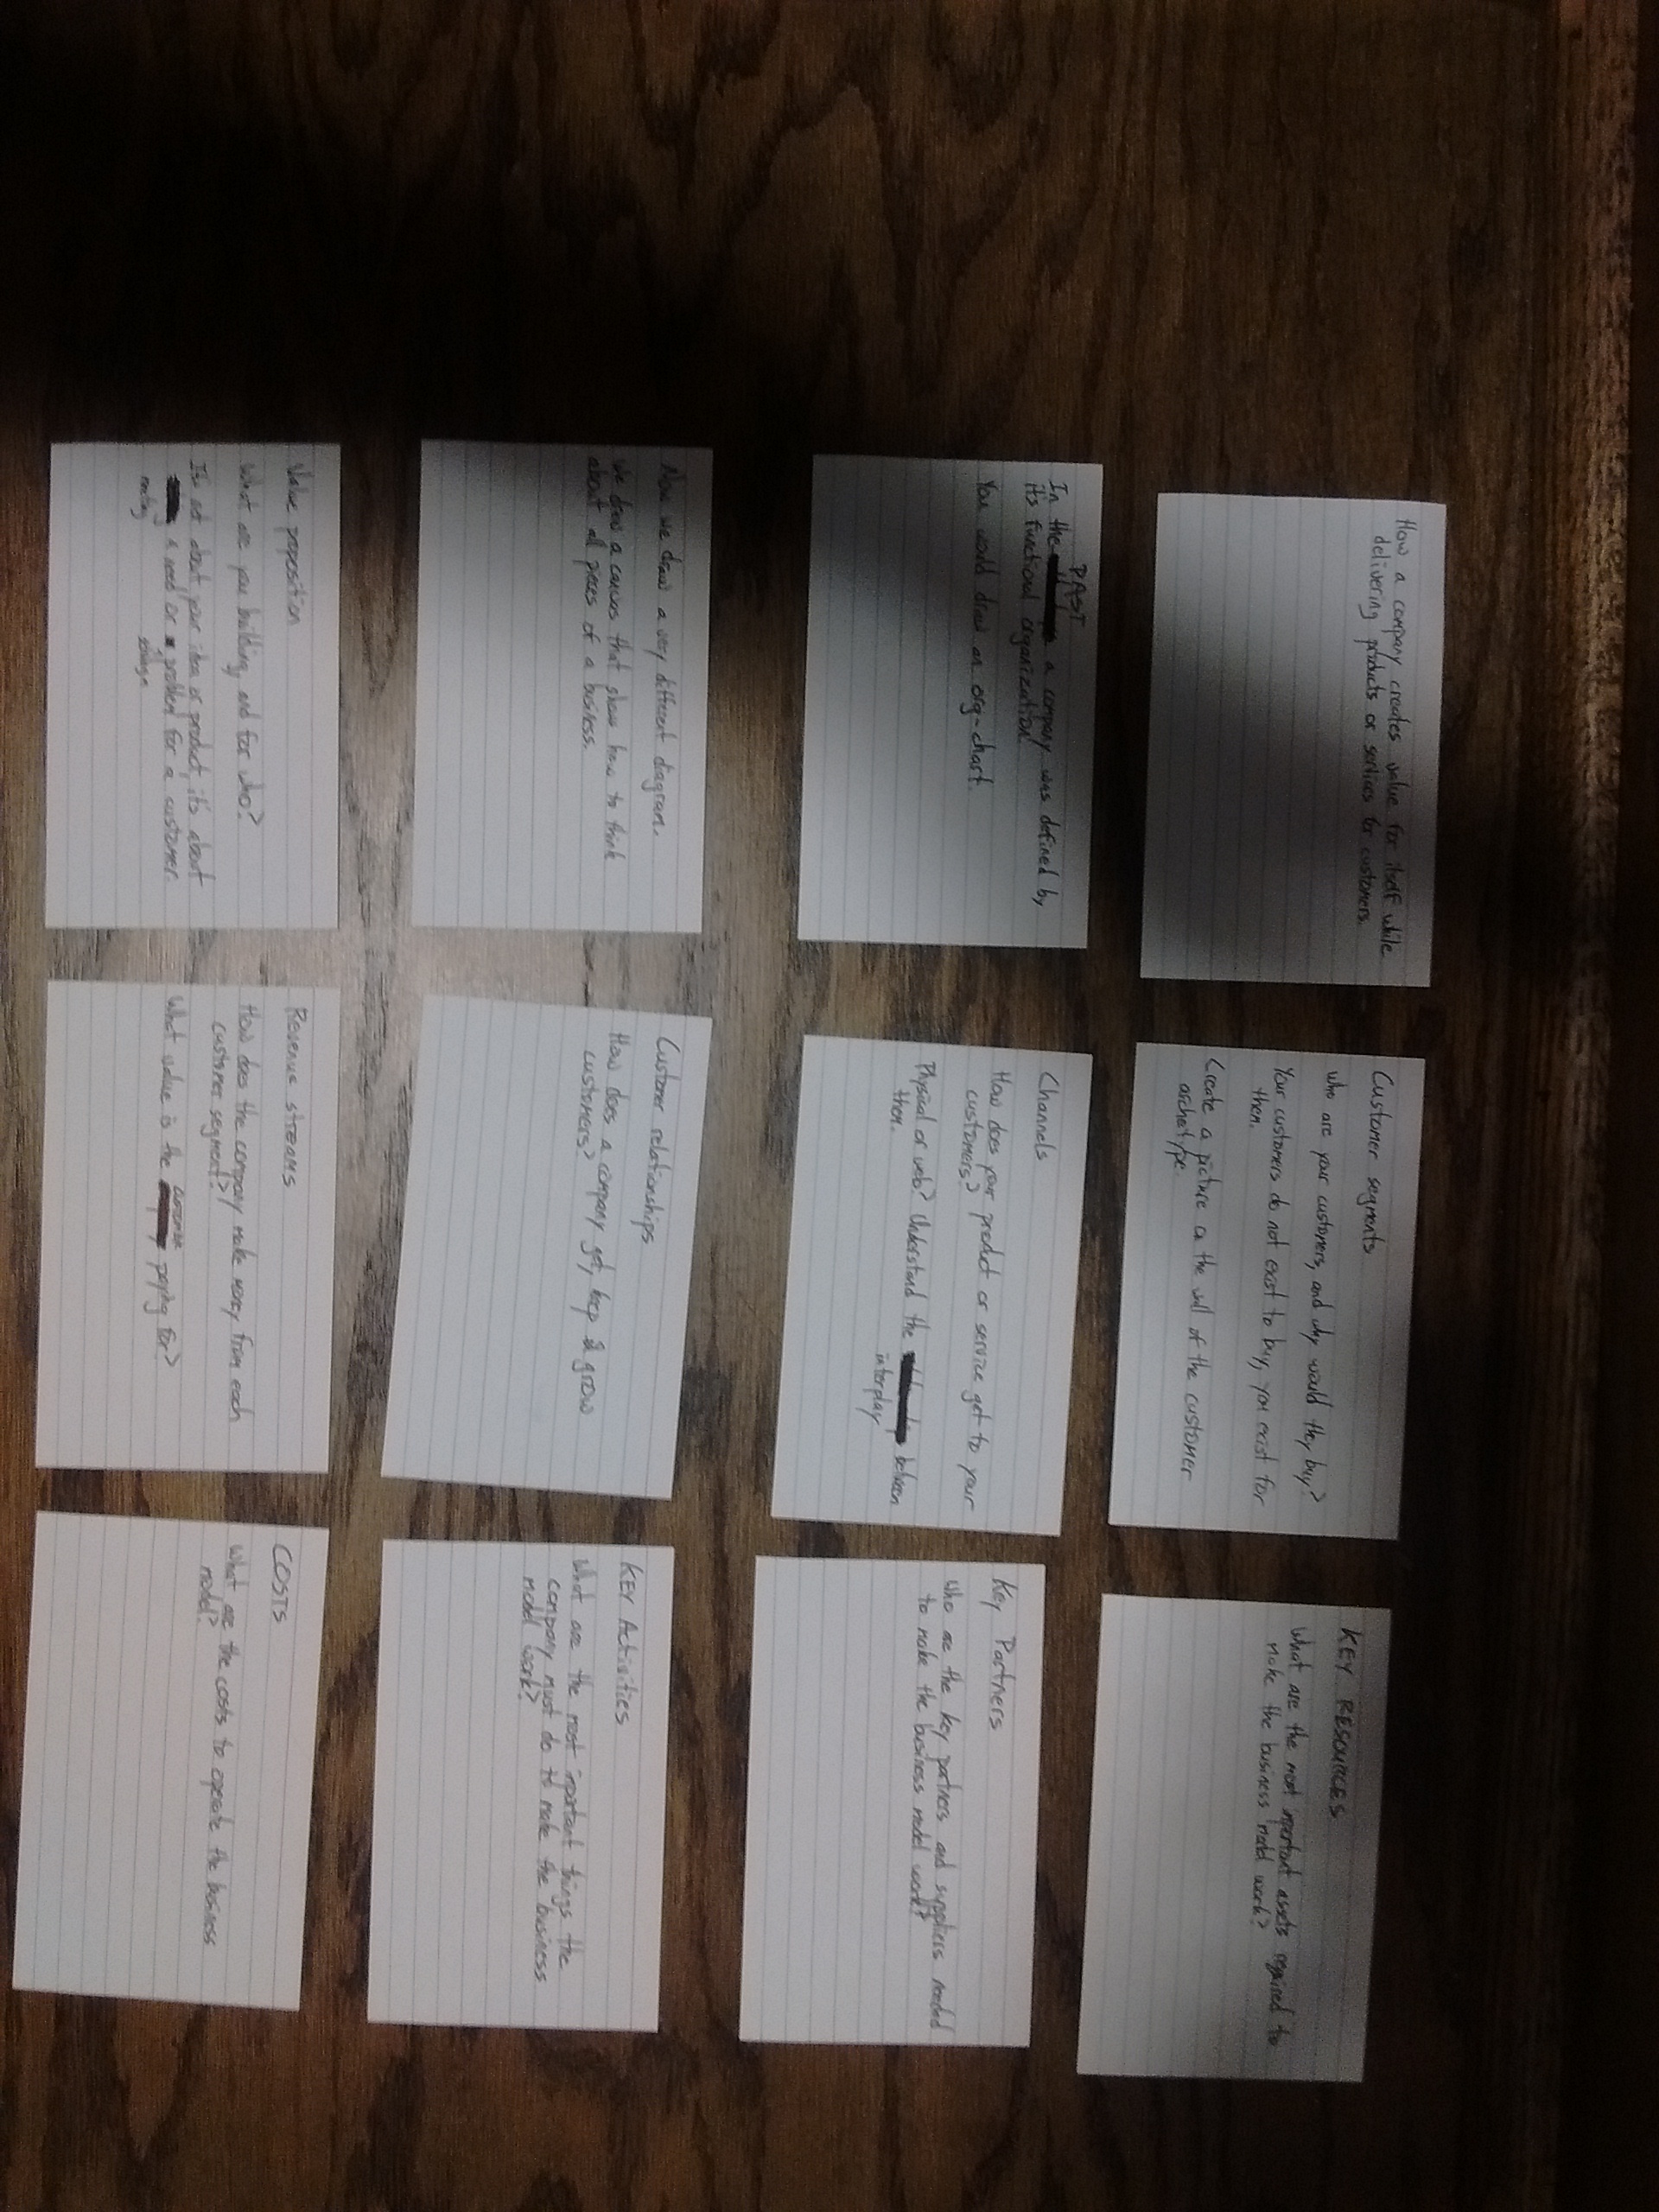 How a company creates value for itself while
delivering products or services for customers.
PAST
In the a company was defined by
its functional organization.
You would draw an org-chart.
Now we draw a very different diagram.
We draw a canvas that shows how to think
about all pieces of a business.
Value proposition
What are you building, and for who?
Its not about your idea or product, it's about
a need or problem for a customer.
meeting solving a
Customer segments
Who are your customers, and why would they buy?
Your customers do not exist to buy, you exist for
them.
Create a picture on the wall of the customer
archetype.
Channels
How does your product or service get to your
customers?
Physical or web? Understand the between
interplay
them.
Customer relationships
How does a company get, keep & grow
customers?
Revenue streams
How does the company make money from each
customer segment?
customer
What value is the paying for?
KEY RESOURCES
What are the most important assets required to
make the business model work?
Key Partners
Who are the key partners and suppliers needed
to make the business model work?
KEY Activities
What are the most important things the
company must do to make the business
model work?
COSTS
What are the costs to operate the business
model?